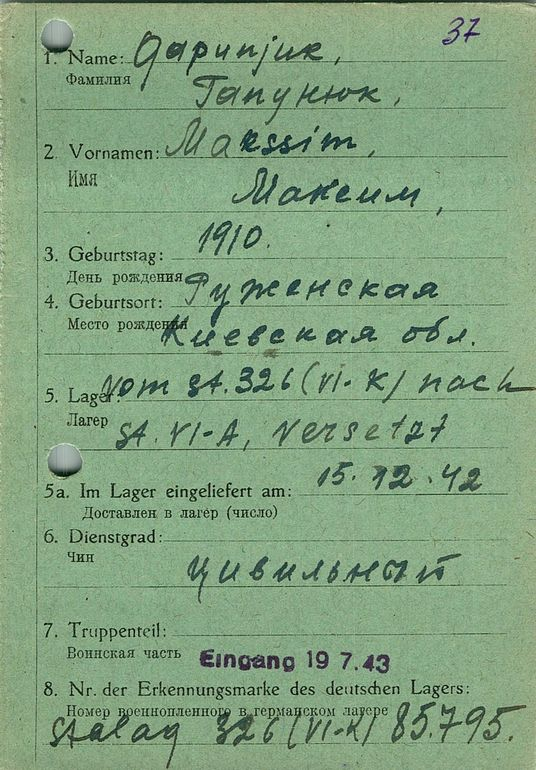 37
1. Name: Gapunjuk,
Фамилия
Гапунюк,
2. Vornamen: Makssim,
Имя
Максим,
1910.
3. Geburtstag:
День рождения
4. Geburtsort: Руженская
Место рождения
Киевская обл.
5. Lager: vom St. 326 (VI-K) nach
Лагер
St. VI-A, versetzt
15. 12. 42
5a. Im Lager eingeliefert am:
Доставлен в лагер (число)
6. Dienstgrad:
Чин
цивильный
7. Truppenteil:
Воинская часть
Eingang 19 7.43
8. Nr. der Erkennungsmarke des deutschen Lagers:
Номер военнопленного в германском лагере
Stalag 326 (VI-K) 85.795.